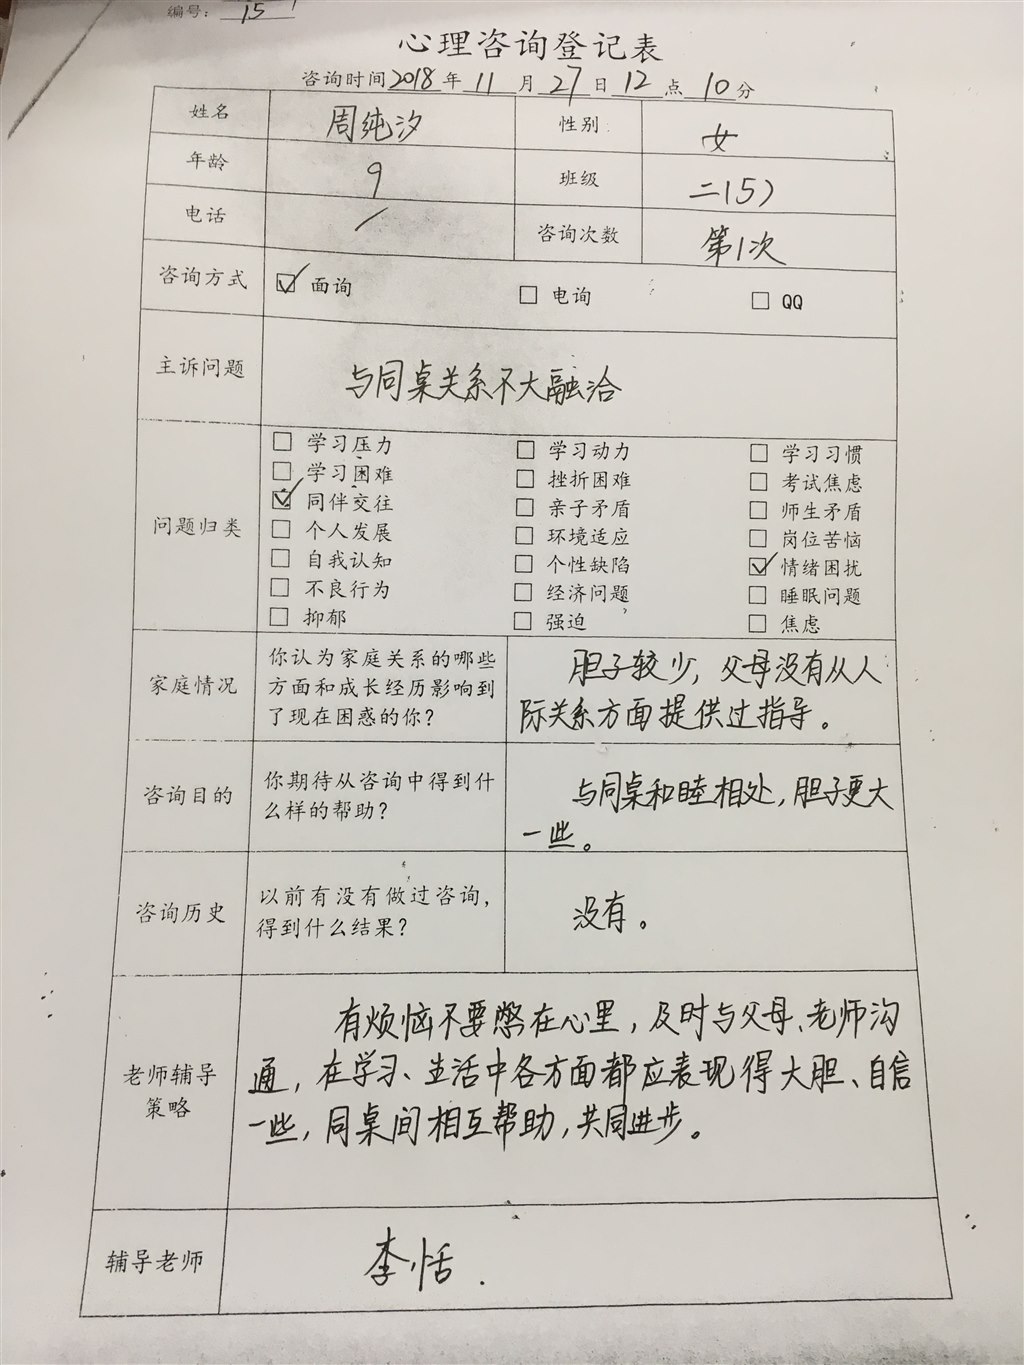 编号：15
心理咨询登记表
咨询时间2018年11月27日12点10分
姓名 周纯汐 性别 女
年龄 9 班级 二(5)
电话 / 咨询次数 第1次
咨询方式 ☑ 面询 □ 电询 □ QQ
主诉问题 与同桌关系不大融洽
□ 学习压力 □ 学习动力 □ 学习习惯
□ 学习困难 □ 挫折困难 □ 考试焦虑
☑ 同伴交往 □ 亲子矛盾 □ 师生矛盾
问题归类 □ 个人发展 □ 环境适应 □ 岗位苦恼
□ 自我认知 □ 个性缺陷 ☑ 情绪困扰
□ 不良行为 □ 经济问题 □ 睡眠问题
□ 抑郁 □ 强迫 □ 焦虑
家庭情况
你认为家庭关系的哪些
方面和成长经历影响到
了现在困惑的你？
胆子较少，父母没有从人
际关系方面提供过指导。
咨询目的
你期待从咨询中得到什
么样的帮助？
与同桌和睦相处，胆子更大
一些。
咨询历史
以前有没有做过咨询，
得到什么结果？
没有。
老师辅导
策略
有烦恼不要憋在心里，及时与父母、老师沟
通，在学习、生活中各方面都应表现得大胆、自信
一些，同桌间相互帮助，共同进步。
辅导老师 李恬.